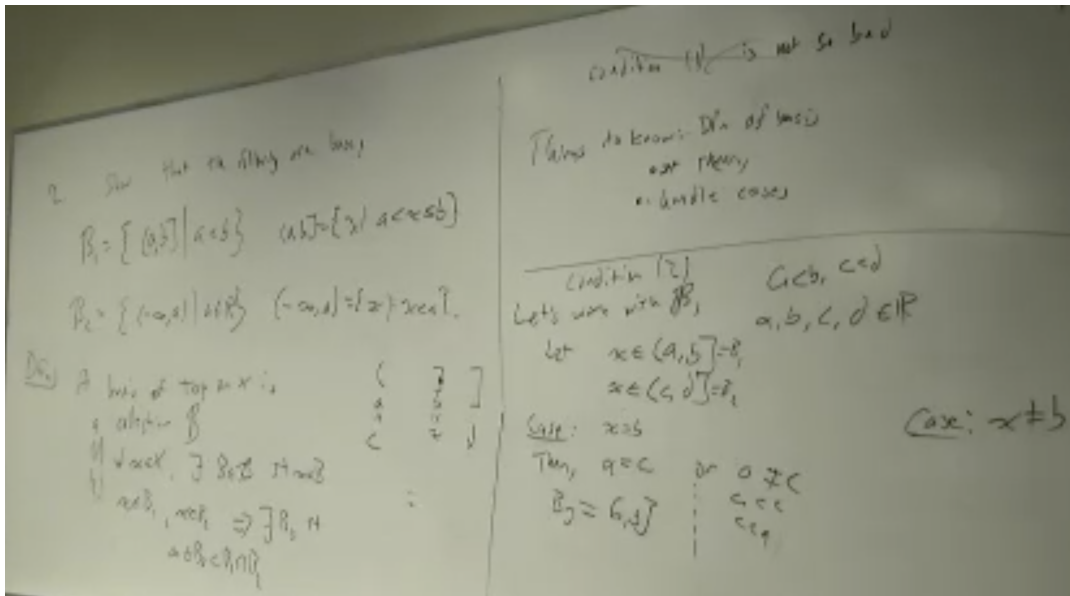 2. Show that the following are bases
B₁ = { (a,b] | a<b }   (a,b] = { x | a<x≤b }
B₂ = { (-∞,a) | a∈ℝ }   (-∞,a) = { x | x<a }.
Defn) A basis of top on X is
a collection B
1) ∀x∈X, ∃ B∈B st x∈B
x∈B₁, x∈B₂ ⇒ ∃B₃ st
x∈B₃⊂B₁∩B₂
( ] ]
a b
c d
condition (1) is not so bad
Things to know: Dfn of basis
handle cases
condition (2)
Let's work with B₁
a<b, c<d
a, b, c, d ∈ ℝ
Let x∈(a,b]=B₁
x∈(c,d]=B₂
Case: x=b
Then, a=c or a≠c
B₃ =
a<c
c<a
Case: x≠b